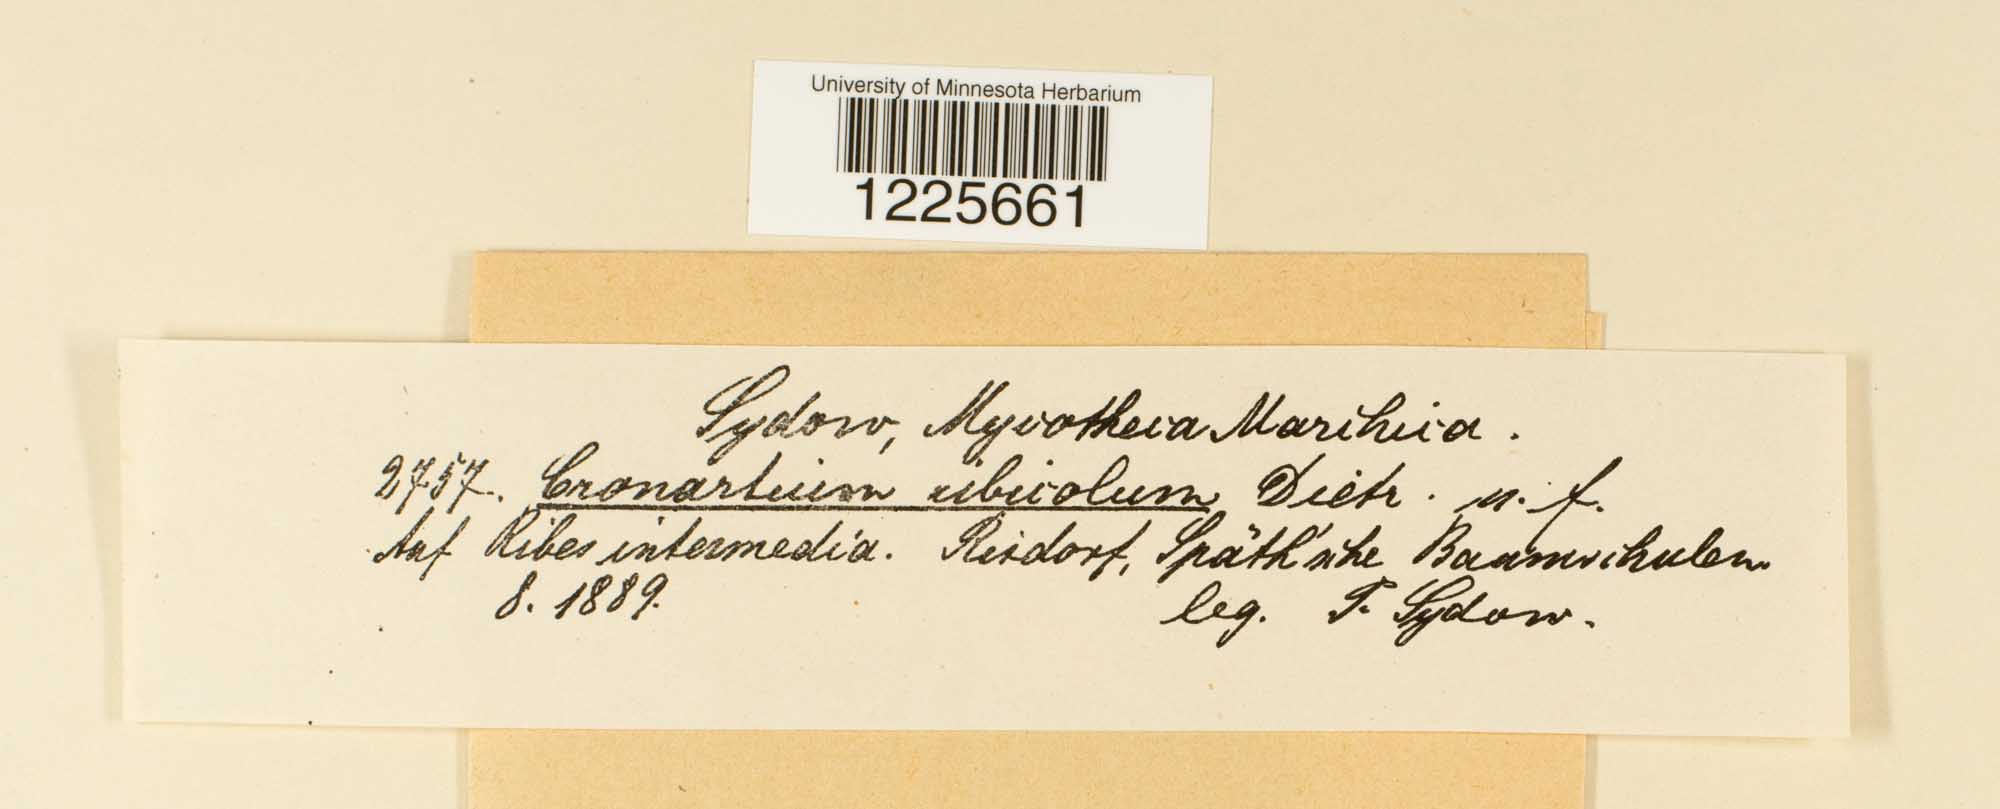 University of Minnesota Herbarium
1225661
Sydow, Mycotheca Marchica.
2757. Cronartium ribicolum Dietr. n. f.
Auf Ribes intermedia. Rixdorf, Späth'sche Baumschulen.
8. 1889. leg. P. Sydow.